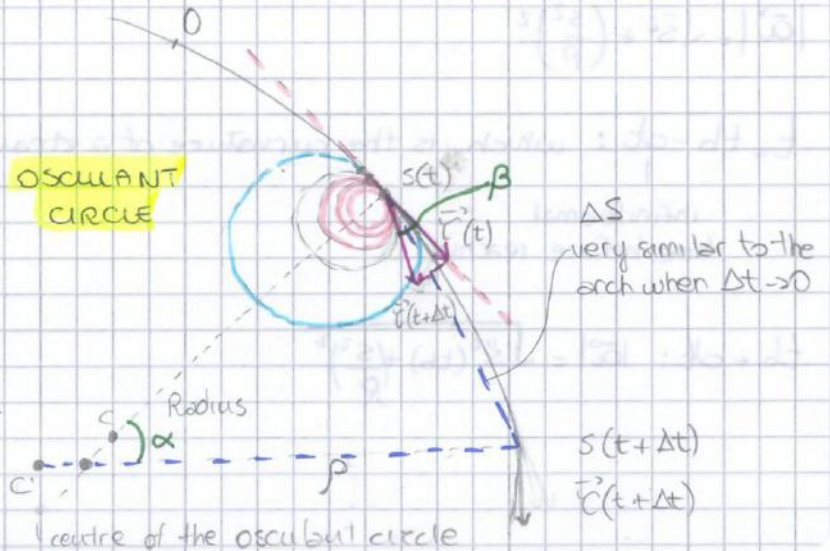 O
OSCULANT
CIRCLE
s(t)
β
τ⃗(t)
ΔS
very similar to the
arch when Δt→0
τ⃗(t+Δt)
Radius
C
α
C'
ρ
s(t+Δt)
τ⃗(t+Δt)
centre of the osculant circle